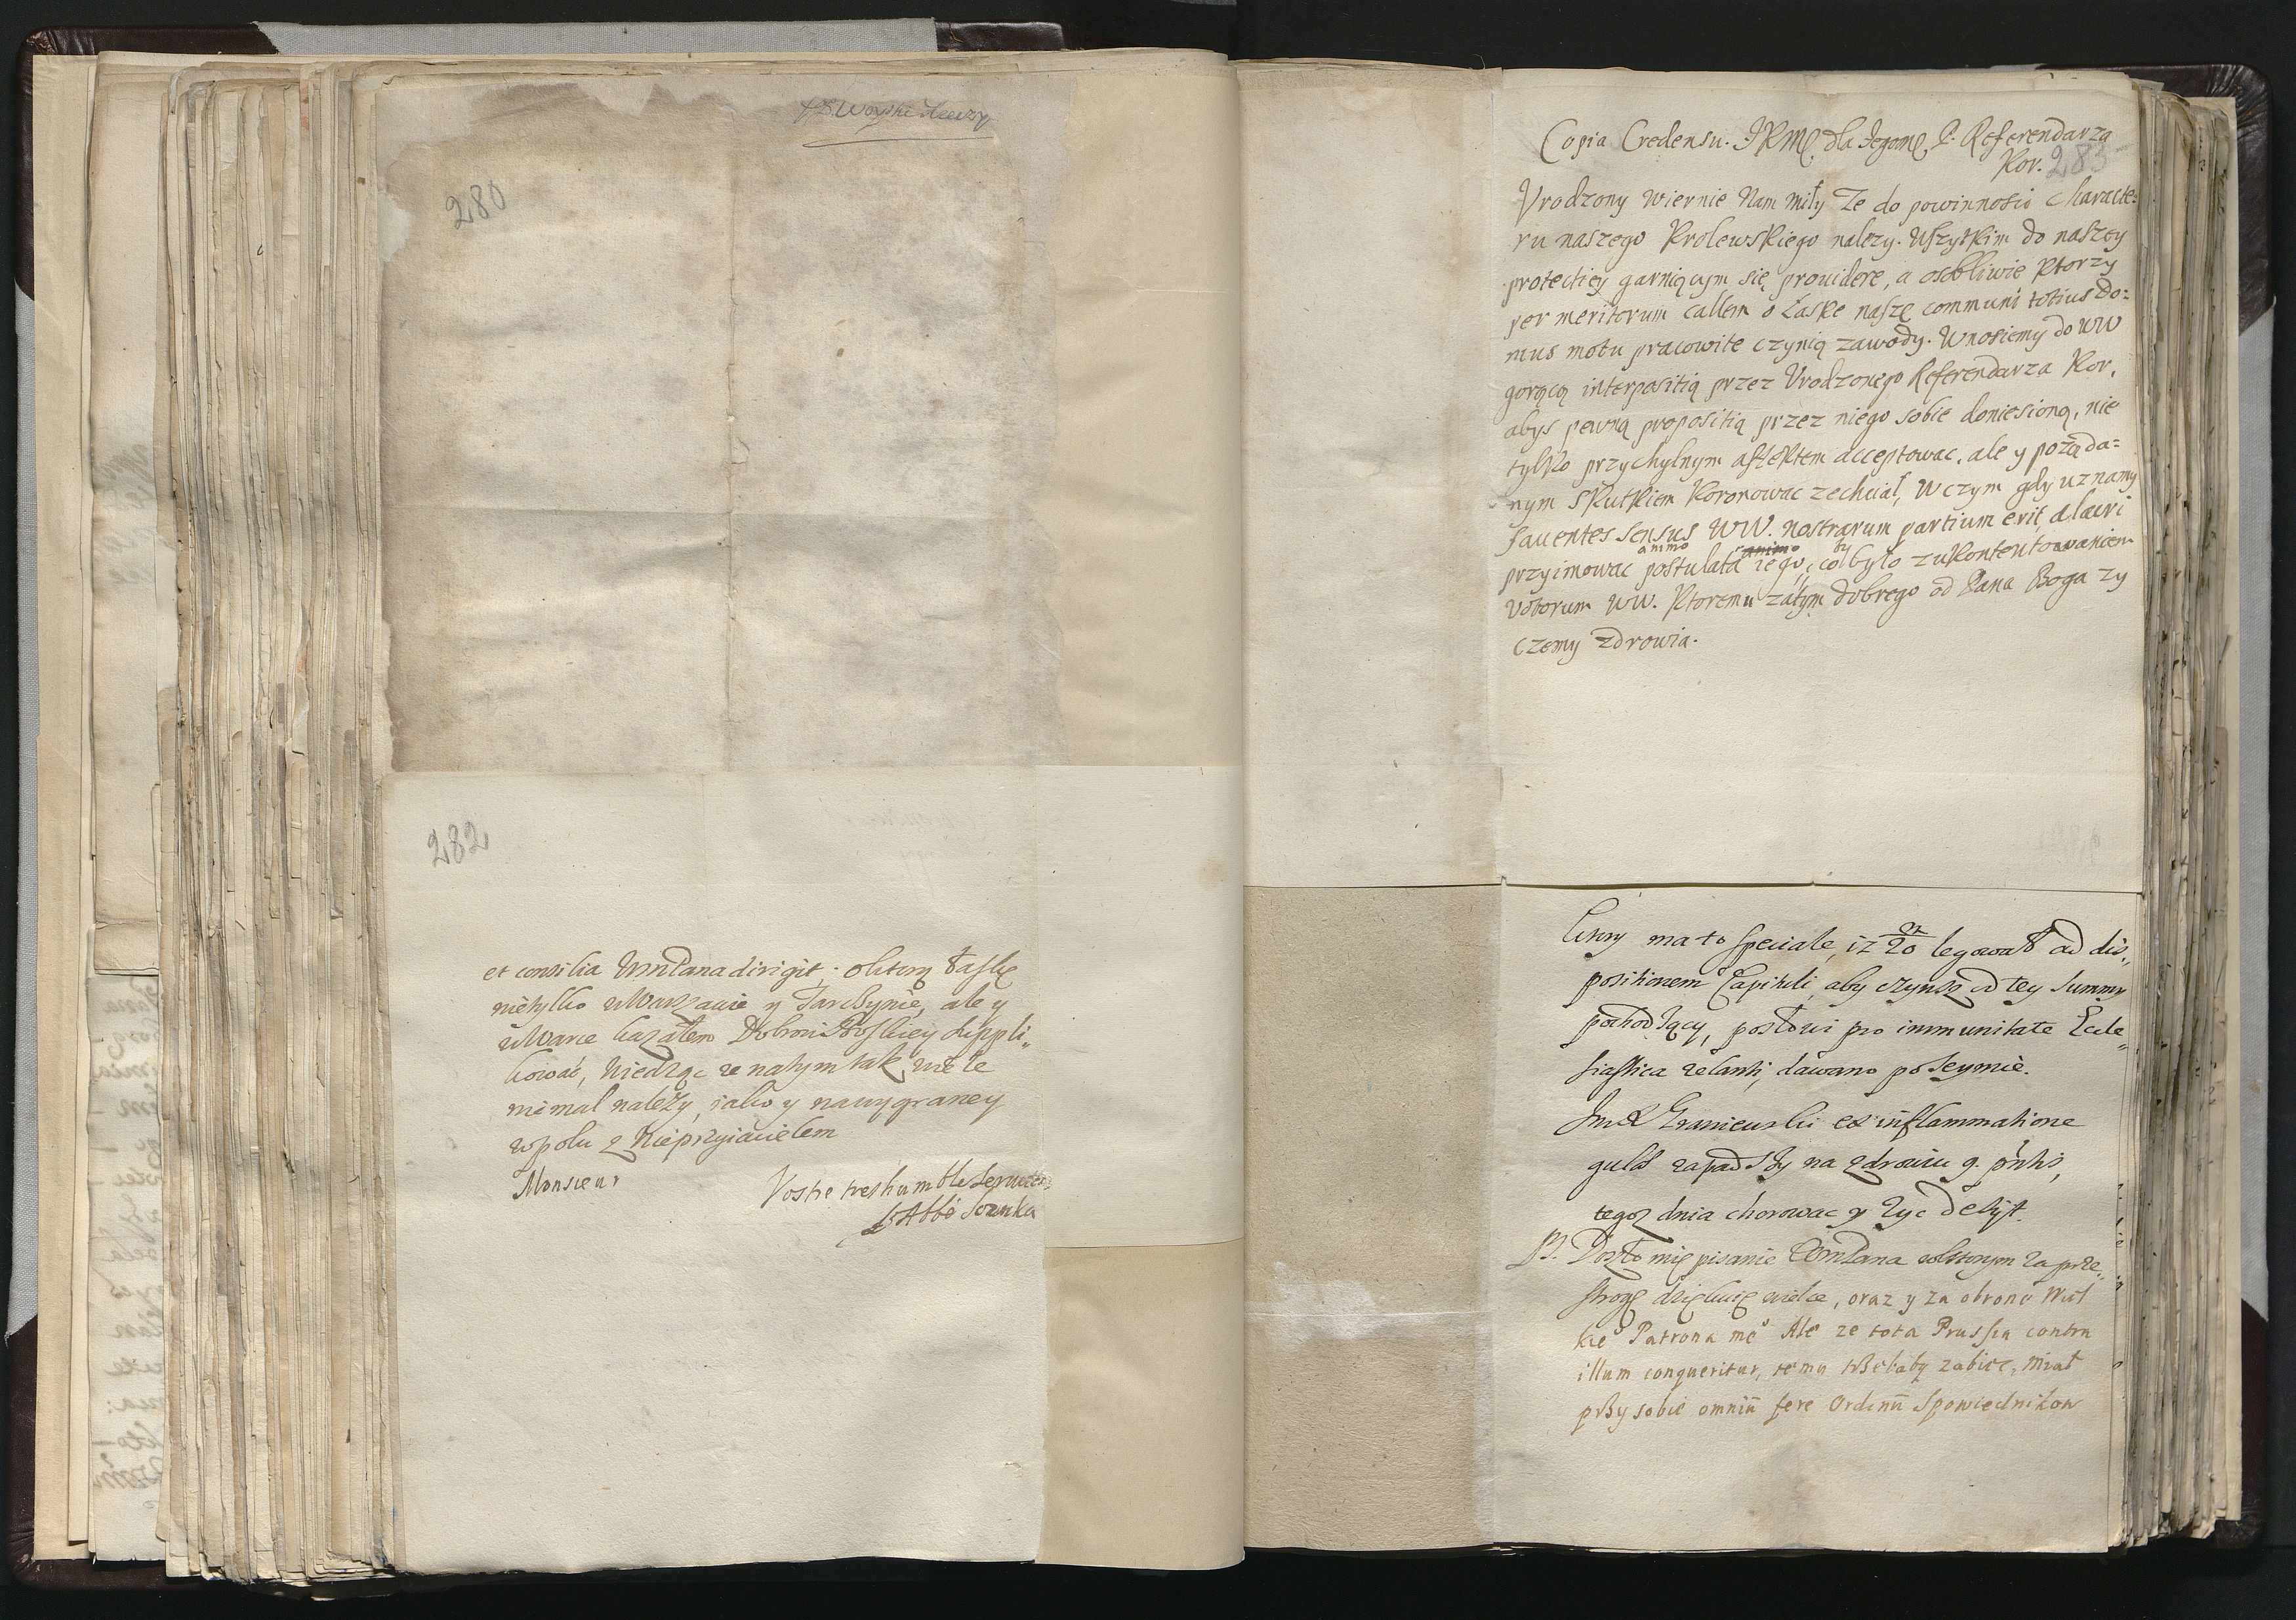 280
282
et consilia WmPana dirigit; o ktorą łaskę
nietylko w Warszawie y Tarczynie, ale y
w Warce kazałem Dobromi Boskiey suppli„
kować, wiedząc ze natym tak wiele
mimal należy, iako y nawygraney
wpolu z Nieprzyiacielem
Monsieur
Vostre treshumble Serviteur
L'Abbé
Copia Credensu. JKMć. dla Jegomć. P. Referendarza
Kor. 283
Vrodzony wiernie Nam miły Ze do powinnosci Characte:
ru naszego Krolewskiego nalezy. Wszytkim do naszey
protectiey garniącym się prouidere, a osobliwie Ktorzy
per meritorum callem o Łaske naszę communi totius Do:
mus motu pracowite czynią zawody. Wnosiemy do UW
gorącą interpositią przez Vrodzonego Referendarza Kor.
abys pewną propositią przez niego sobie doniesioną, nie
tylko przychylnym affektem acceptowac, ale y pożąda:
nym skutkiem Koronowac zechciał, W czym gdy uznamy
fauentes sensus UW. nostrarum partium erit, alacri
animo animo by
przyimowac postulata iego, co było z ukontentowaniem
Votorum UW. Ktoremu zatym dobrego od Pana Boga zy
czemy zdrowia.
ma to speciale, iz 20 legował ad dis„
positionem Capituli, aby czynsz od tey Summy
pochodzący, posłowi pro immunitate Eccle„
siastica zelanti, dawano po Seymie.
Graniewski ex inflammatione
gulae zapadszy na zdrowiu 9. pntis,
tegoż dnia chorowac y zyc desijt.
PS. Doszło mię pisanie WmPana w ktorym za prze„
strogę dziękuię wielce, oraz y za obronę Wiel
kie Patrona me Ale ze tota Prussia contra
illum conqueritur, temu trzebaby zabiec, miał
przy sobie omniū fere Ordinū Spowiednikow